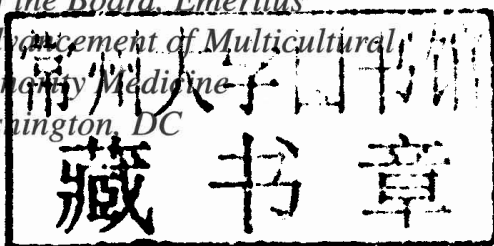 the Board, Emeritus
dvancement of Multicultural
nority Medicine
hington, DC
常州大学图书馆
藏书章